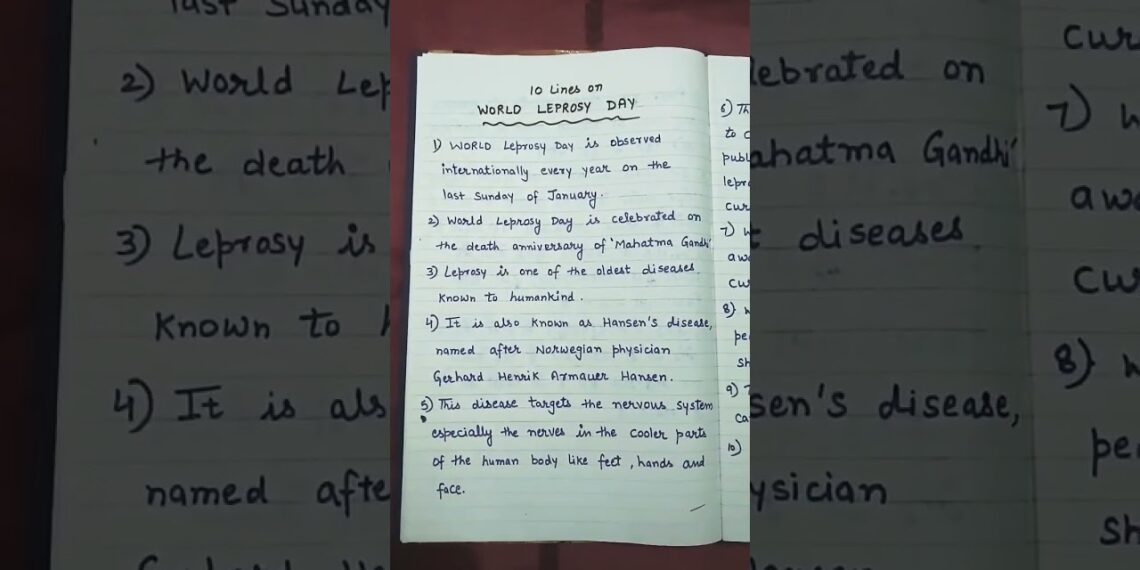 10 Lines on
WORLD LEPROSY DAY
1) WORLD Leprosy Day is observed
internationally every year on the
last Sunday of January.
2) World Leprosy Day is celebrated on
the death anniversary of 'Mahatma Gandhi'
3) Leprosy is one of the oldest diseases
known to humankind.
4) It is also known as Hansen's disease,
named after Norwegian physician
Gerhard Henrik Armauer Hansen.
5) This disease targets the nervous system
especially the nerves in the cooler parts
of the human body like feet, hands and
face.
6) Th
to c
publ
lepr
cur
7) W
awa
cu
8) w
pe
sh
9) T
ca
10)
last Sunday
2) World Lep
the death
3) Leprosy is
known to
4) It is als
named afte
lebrated on
ahatma Gandhi'
t diseases
sen's disease,
ysician
cur
7) W
awa
cu
8) w
pe
sh